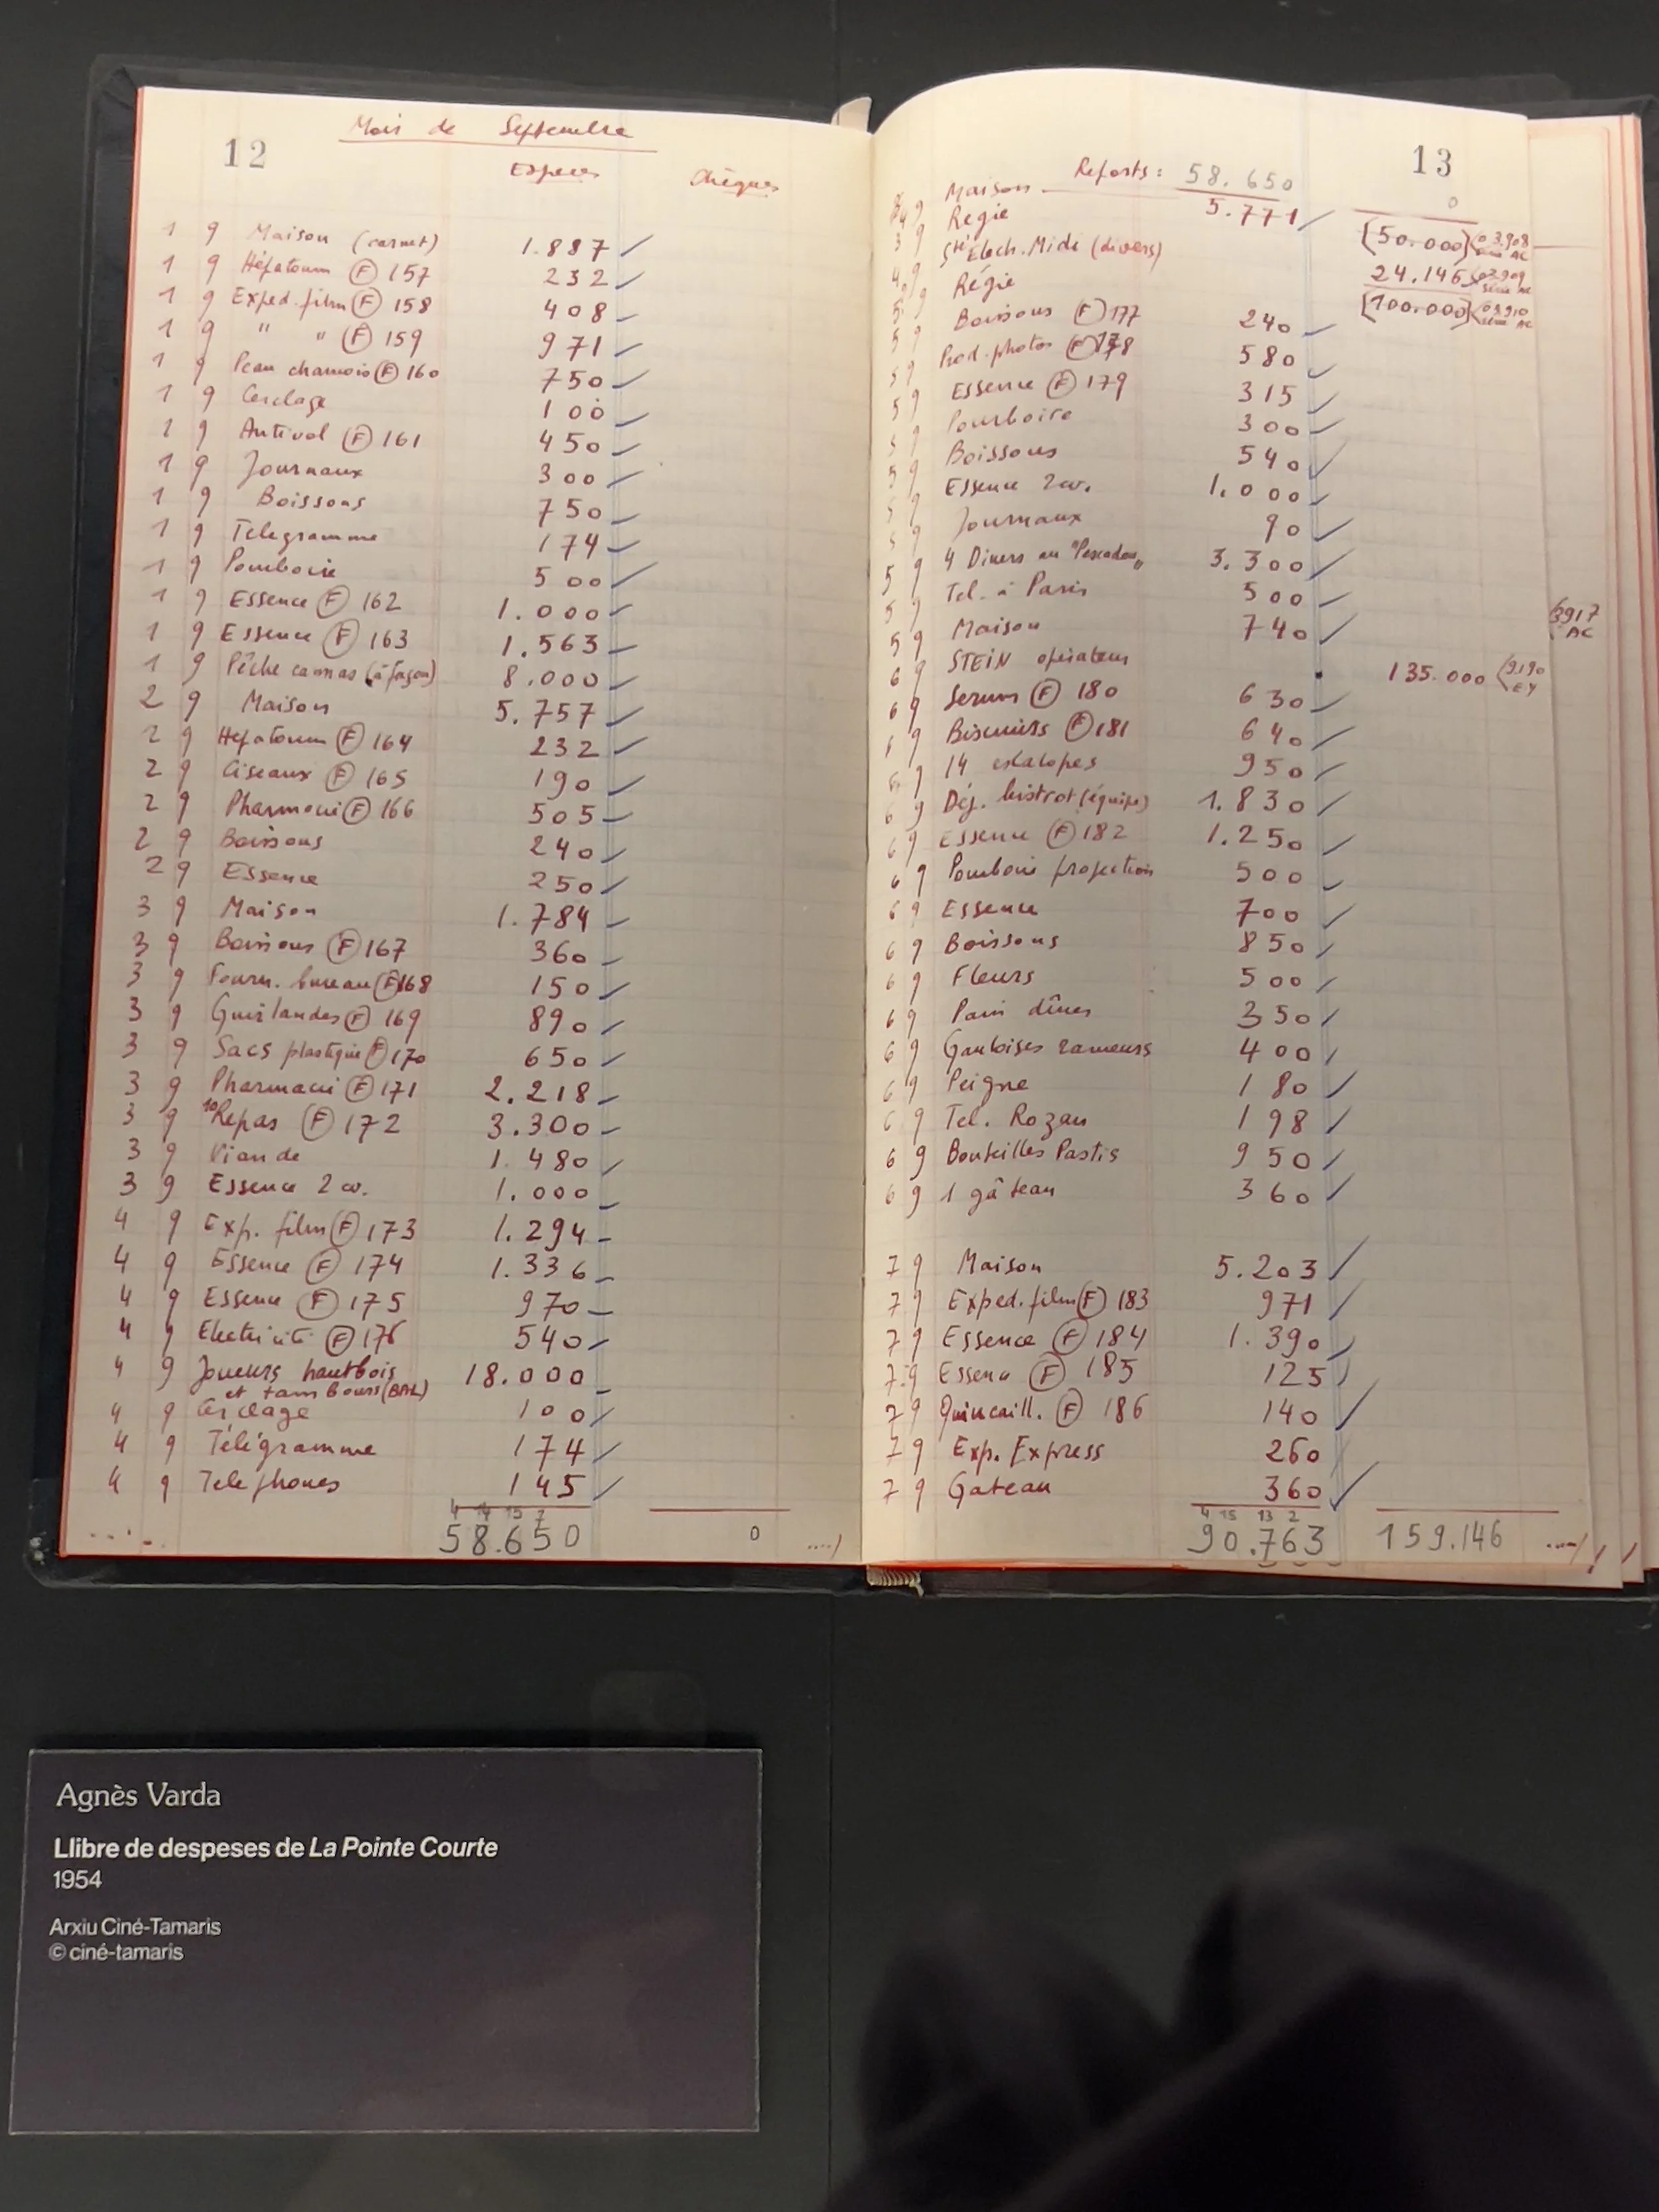 12
Mois de Septembre
Espèces Chèques
1 9 Maison (carnet) 1.887
1 9 Hépatoum (F) 157 232
1 9 Exped. film (F) 158 408
1 9 " " (F) 159 971
1 9 Peau chamois (F) 160 750
1 9 Cerclage 100
1 9 Antivol (F) 161 450
1 9 Journaux 300
1 9 Boissons 750
1 9 Telegramme 174
1 9 Pourboire 500
1 9 Essence (F) 162 1.000
1 9 Essence (F) 163 1.563
1 9 Pêche (à façon) 8.000
2 9 Maison 5.757
2 9 Hepatoum (F) 164 232
2 9 Ciseaux (F) 165 190
2 9 Pharmacie (F) 166 505
2 9 Boissons 240
2 9 Essence 250
3 9 Maison 1.784
3 9 Boissons (F) 167 360
3 9 Fourn. bureau (F) 168 150
3 9 Guirlandes (F) 169 890
3 9 Sacs plastique (F) 170 650
3 9 Pharmacie (F) 171 2.218
3 9 10 Repas (F) 172 3.300
3 9 Viande 1.480
3 9 Essence 2 cv. 1.000
4 9 Exp. film (F) 173 1.294
4 9 Essence (F) 174 1.336
4 9 Essence (F) 175 970
4 9 Electricité (F) 176 540
4 9 Joueurs hautbois 18.000
et tambours (BAL)
4 9 Cerclage 100
4 9 Télégramme 174
4 9 Telephones 145
4 14 15 7
58.650 0
13
Reports: 58.650 0
Maison 5.771
Regie (50.000) (03.908 série AC
Sté Elech. Midi (divers) 24.146 (03909 série AC
Régie (100.000) (03910 série AC
5 9 Boissons (F) 177 240
5 9 Prod. photos (F) 178 580
5 9 Essence (F) 179 315
5 9 Pourboire 300
5 9 Boissons 540
5 9 Essence 2cv. 1.000
5 9 Journaux 90
5 9 4 Diners au "Pescadou" 3.300
5 9 Tel. à Paris 500
5 9 Maison 740
(3917 AC
6 9 STEIN opérateur 135.000 (9.190 EY
6 9 Serum (F) 180 630
6 9 Biscuits (F) 181 640
6 9 14 escalopes 950
6 9 Déj. bistrot (équipe) 1.830
6 9 Essence (F) 182 1.250
6 9 Pourboire projection 500
6 9 Essence 700
6 9 Boissons 850
6 9 Fleurs 500
6 9 Pain dîner 350
6 9 Gauloises rameurs 400
6 9 Peigne 180
6 9 Tel. Rozan 198
6 9 Bouteilles Pastis 950
6 9 1 gâteau 360
7 9 Maison 5.203
7 9 Exped. film (F) 183 971
7 9 Essence (F) 184 1.390
7 9 Essence (F) 185 125
7 9 Quincaill. (F) 186 140
7 9 Exp. Express 260
7 9 Gateau 360
4 15 13 2
90.763 159.146
Agnès Varda
Llibre de despeses de La Pointe Courte
1954
Arxiu Ciné-Tamaris
© ciné-tamaris